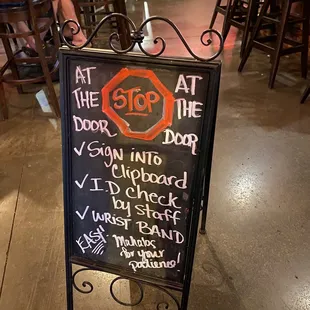 AT
THE
DOOR
STOP
AT
THE
DOOR
✓ Sign into
Clipboard
✓ I.D check
by staff
✓ WRIST BAND
EASY
Mahalo
for your
patience!